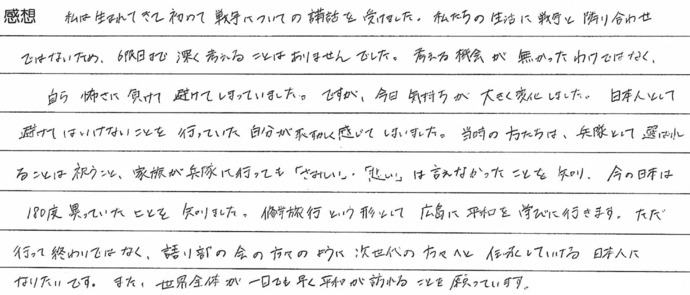 感想 私は生まれてきて初めて戦争についての講話を受けました。私たちの生活に戦争と隣り合わせ
ではないため、6限目まで深く考えることはありませんでした。考える機会が無かったわけではなく、
自ら怖さに負けて避けてしまっていました。ですが、今日気持ちが大きく変化しました。日本人として
避けてはいけないことを行っていた自分が恥ずかしく感じてしまいました。当時の方たちは、兵隊として選ばれ
ることは祝うこと、家族が兵隊に行っても「さみしい」・「悲しい」は言えなかったことを知り、今の日本は
180度異っていたことを知りました。修学旅行という形として広島に平和を学びに行きます。ただ
行って終わりではなく、語り部の会の方々のように次世代の方々へと伝承していける日本人に
なりたいです。また、世界全体が一日でも早く平和が訪れることを願っています。